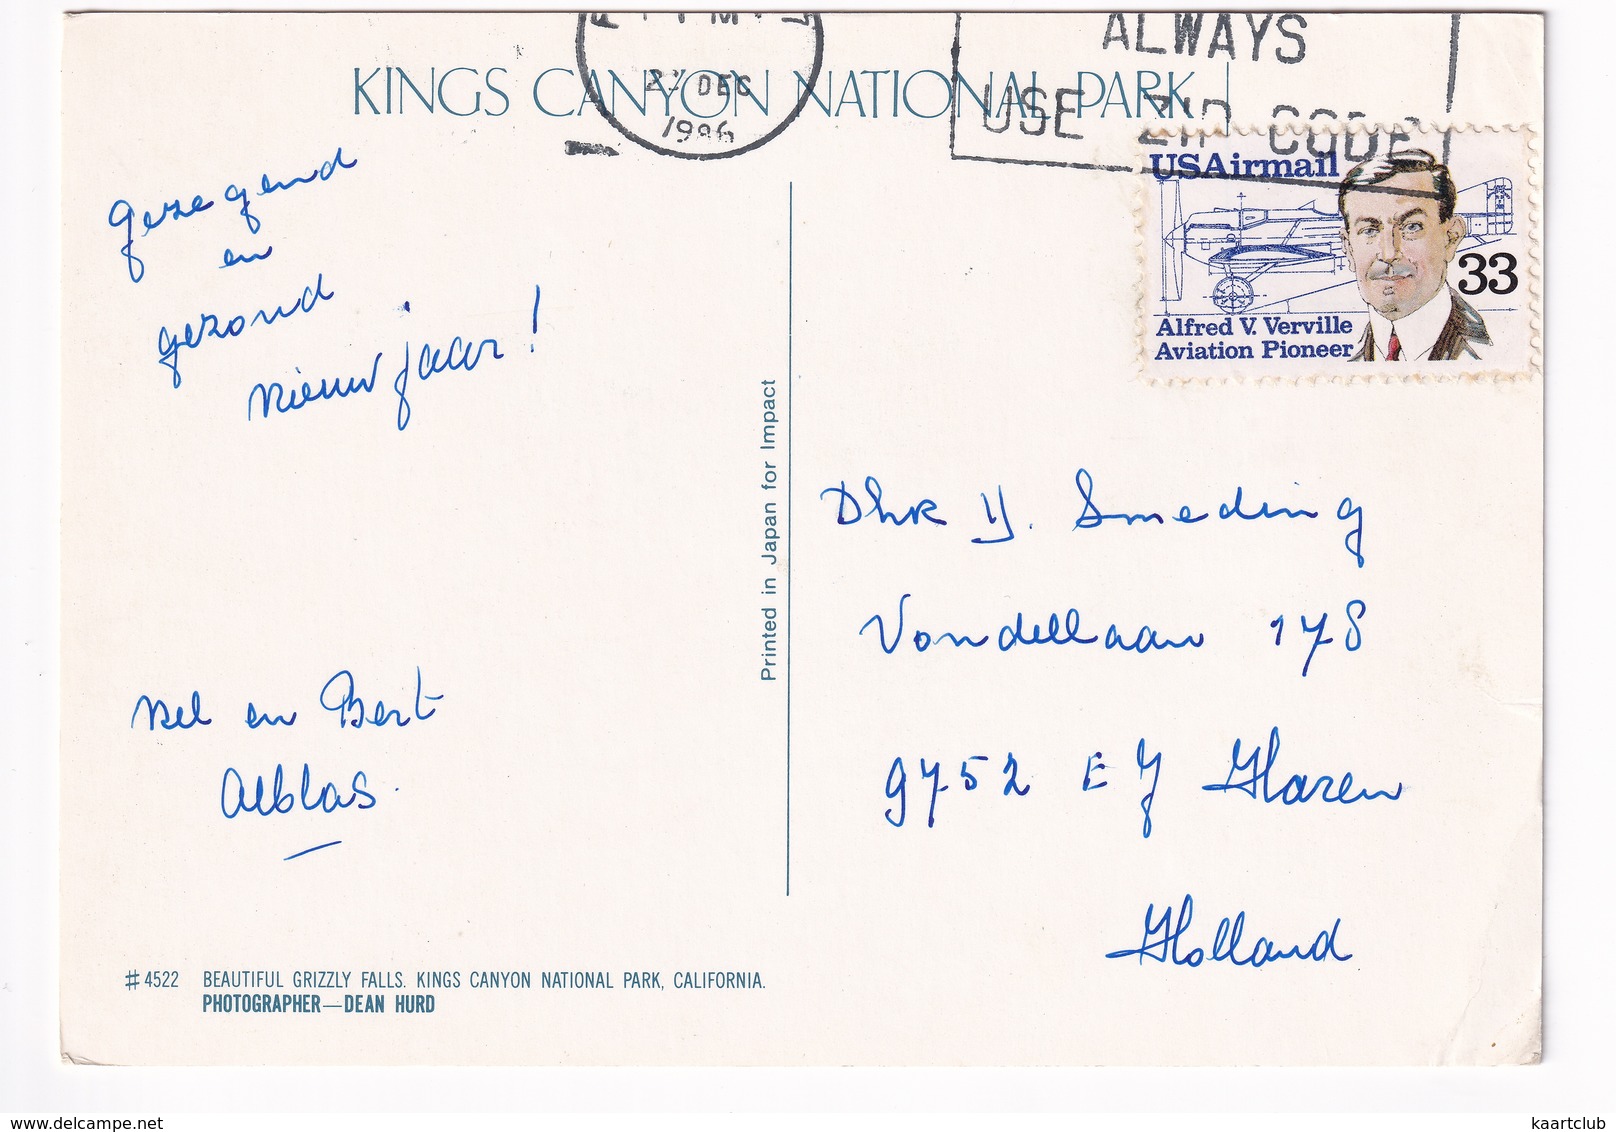 PM
23 DEC
1986
ALWAYS
USE ZIP CODE
KINGS CANYON NATIONAL PARK
USAirmail
33
Alfred V. Verville
Aviation Pioneer
gezegend
en
gezond
nieuwjaar!
Nel en Bert
Alblas.
Printed in Japan for Impact
Dhr IJ. Smeding
Vondellaan 178
9752 EJ Haren
Holland
#4522 BEAUTIFUL GRIZZLY FALLS. KINGS CANYON NATIONAL PARK, CALIFORNIA.
PHOTOGRAPHER—DEAN HURD
www.delcampe.net
kaartclub